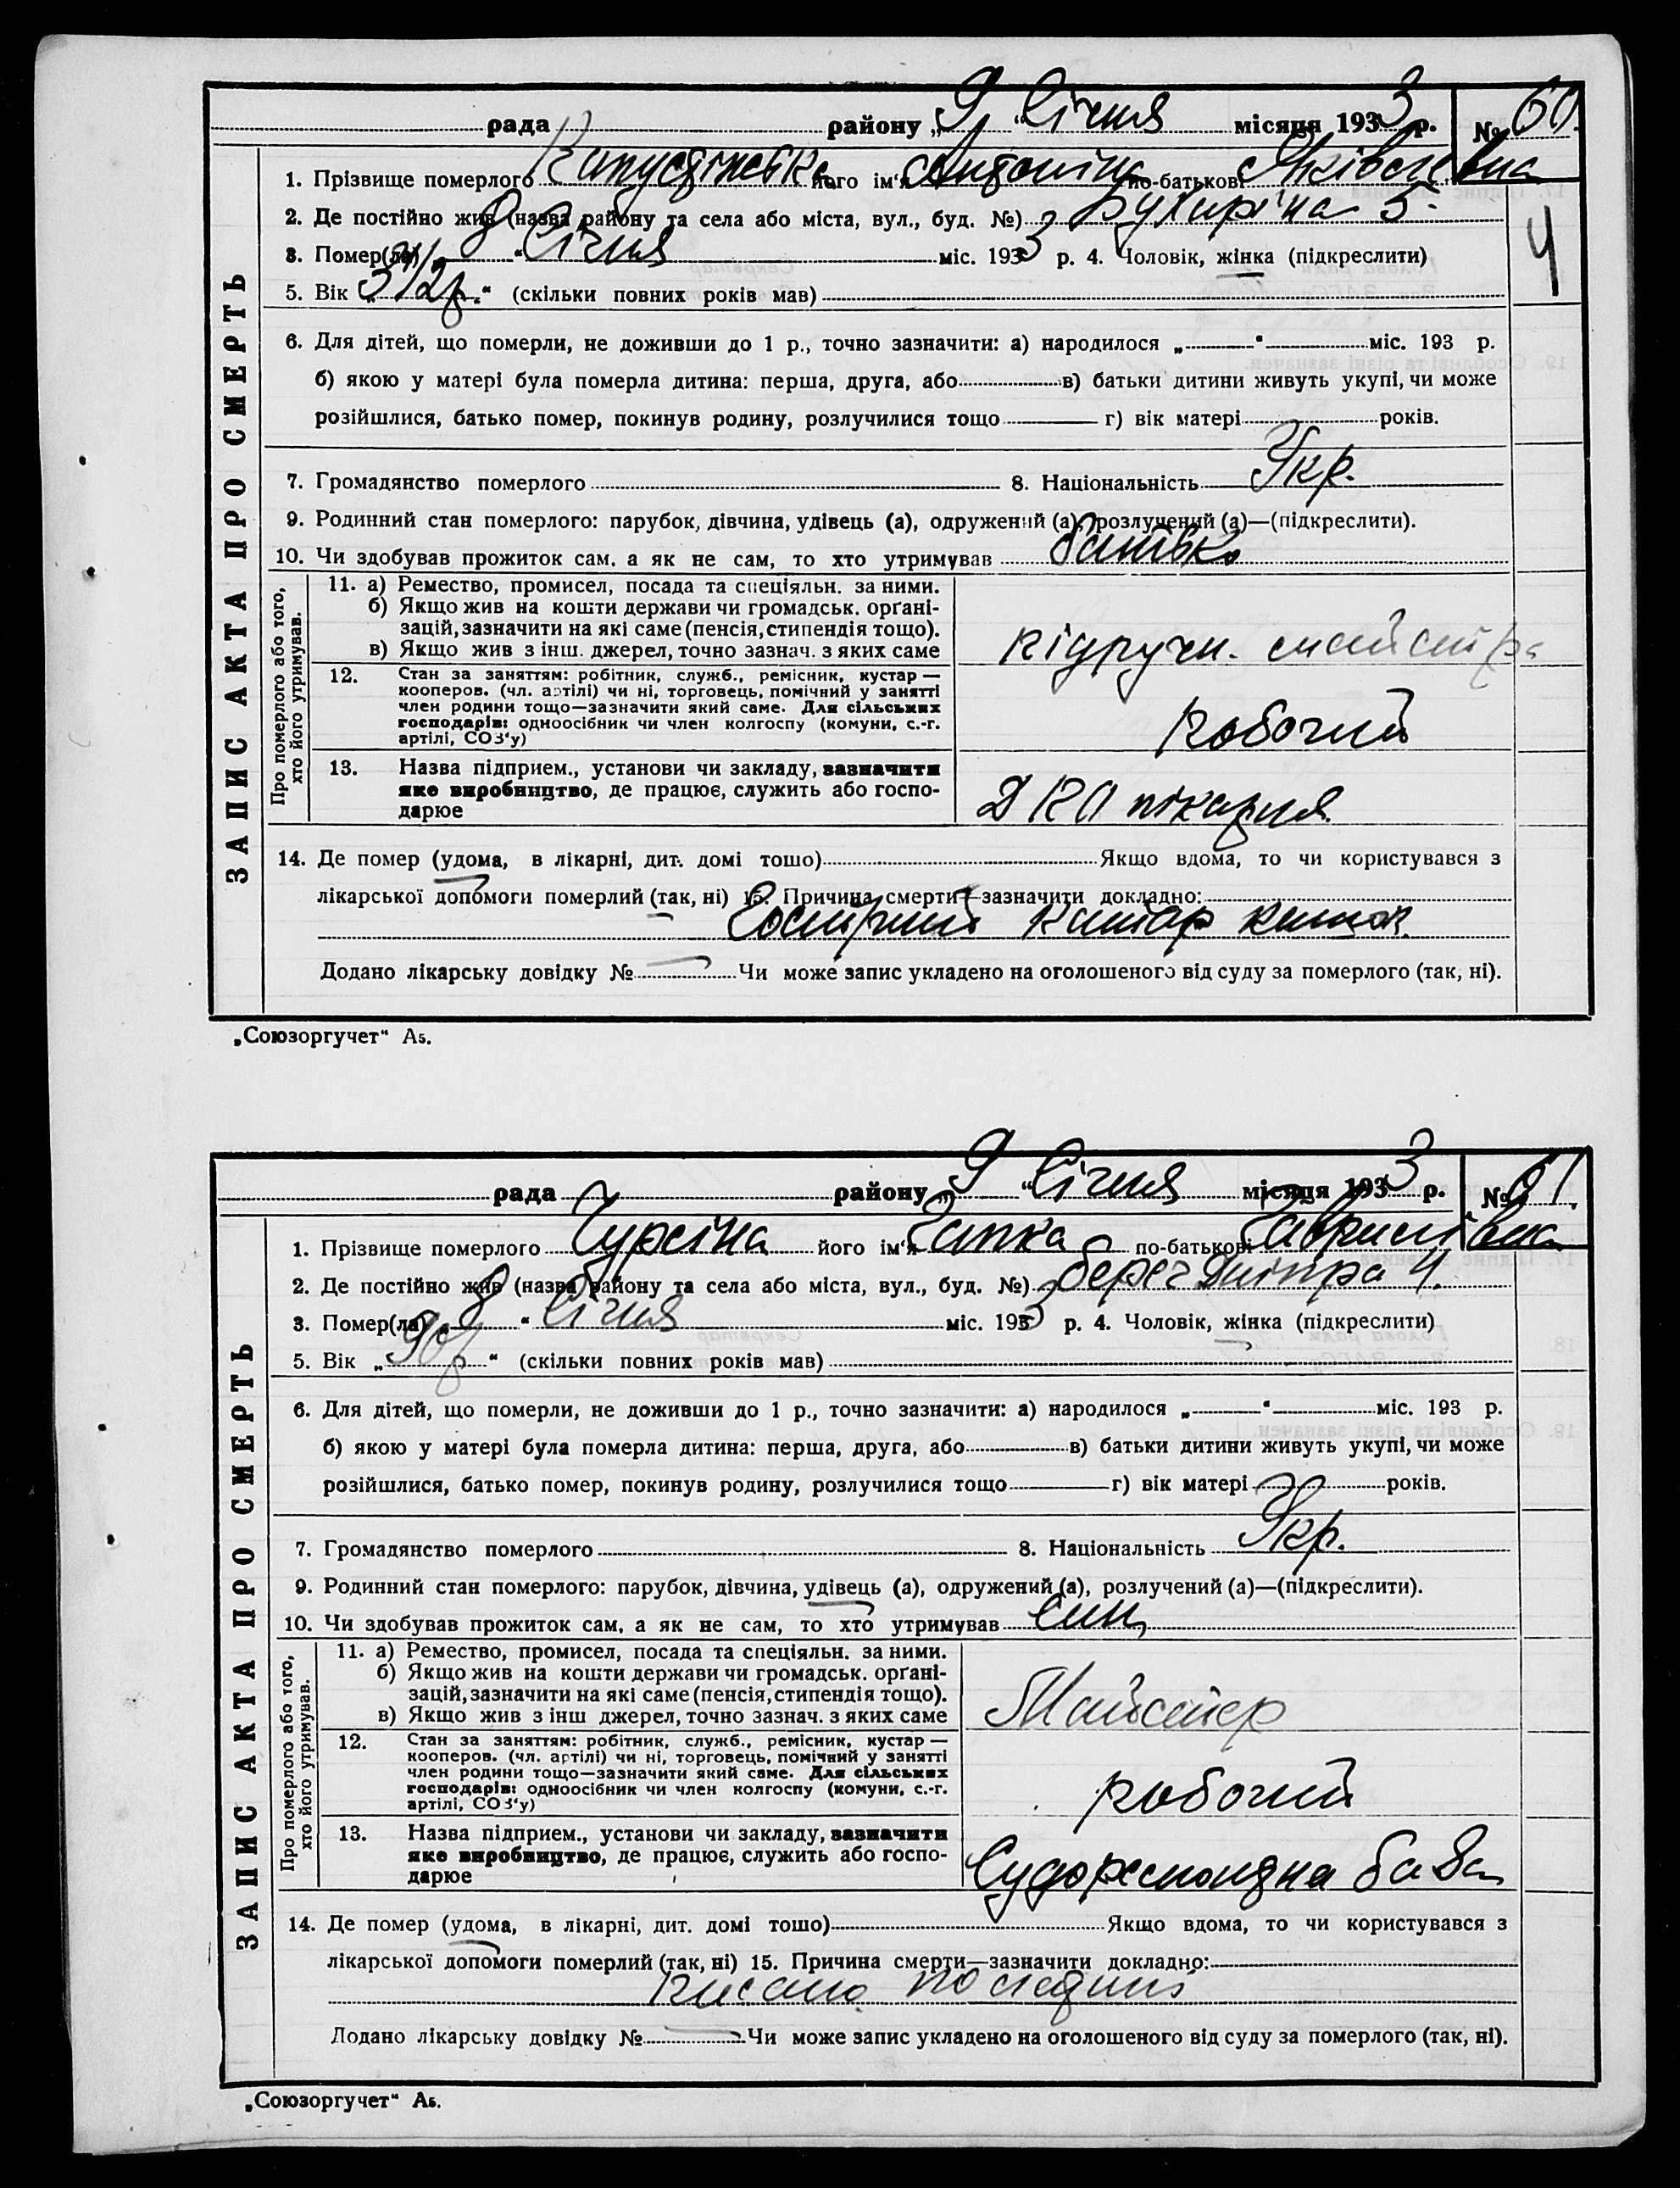 рада району „9“ Січня місяця 1933 р. № 60.
1. Прізвище померлого його ім'я Антоніна по-батькові Яківлевна
2. Де постійно жив (назва району та села або міста, вул., буд. №) Бухаріна 5
4
3. Помер(ла) „8“ Січня міс. 1933 р. 4. Чоловік, жінка (підкреслити)
5. Вік „3 1/2 р.“ (скільки повних років мав)
6. Для дітей, що померли, не доживши до 1 р., точно зазначити: а) народилося „ “ міс. 193 р.
б) якою у матері була померла дитина: перша, друга, або в) батьки дитини живуть укупі, чи може
розійшлися, батько помер, покинув родину, розлучилися тощо г) вік матері років.
7. Громадянство померлого 8. Національність Укр.
9. Родинний стан померлого: парубок, дівчина, удівець (а), одружений (а), розлучений (а)—(підкреслити).
10. Чи здобував прожиток сам, а як не сам, то хто утримував батько
ЗАПИС АКТА ПРО СМЕРТЬ
Про померлого або того,
хто його утримував.
11. а) Ремество, промисел, посада та спеціяльн. за ними.
б) Якщо жив на кошти держави чи громадськ. орґані-
зацій, зазначити на які саме (пенсія, стипендія тощо).
в) Якщо жив з інш. джерел, точно зазнач. з яких саме
підручн. майстра
12. Стан за заняттям: робітник, служб., ремісник, кустар —
кооперов. (чл. артілі) чи ні, торговець, помічний у занятті
член родини тощо—зазначити який саме. Для сільських
господарів: одноосібник чи член колгоспу (комуни, с.-г.
артілі, СОЗ'у)
робочий
13. Назва підприєм., установи чи закладу, зазначити
яке виробництво, де працює, служить або госпо-
дарює
пікарня
14. Де помер (удома, в лікарні, дит. домі тошо) Якщо вдома, то чи користувався з
лікарської допомоги померлий (так, ні) 15. Причина смерти—зазначити докладно:
Гострий катар кишок.
Додано лікарську довідку № Чи може запис укладено на оголошеного від суду за померлого (так, ні).
„Союзоргучет“ А5.
рада району „9“ Січня місяця 1933 р. № 61.
1. Прізвище померлого Чурсіна його ім'я Гапка по-батькові Гаврилівна
2. Де постійно жив (назва району та села або міста, вул., буд. №) берег Дніпра 4.
3. Помер(ла) „8“ Січня міс. 1933 р. 4. Чоловік, жінка (підкреслити)
5. Вік „90 р.“ (скільки повних років мав)
6. Для дітей, що померли, не доживши до 1 р., точно зазначити: а) народилося „ “ міс. 193 р.
б) якою у матері була померла дитина: перша, друга, або в) батьки дитини живуть укупі, чи може
розійшлися, батько помер, покинув родину, розлучилися тощо г) вік матері років.
7. Громадянство померлого 8. Національність Укр.
9. Родинний стан померлого: парубок, дівчина, удівець (а), одружений (а), розлучений (а)—(підкреслити).
10. Чи здобував прожиток сам, а як не сам, то хто утримував син
ЗАПИС АКТА ПРО СМЕРТЬ
Про померлого або того,
хто його утримував.
11. а) Ремество, промисел, посада та спеціяльн. за ними.
б) Якщо жив на кошти держави чи громадськ. орґані-
зацій, зазначити на які саме (пенсія, стипендія тощо).
в) Якщо жив з інш джерел, точно зазнач. з яких саме
Майстер
12. Стан за заняттям: робітник, служб., ремісник, кустар —
кооперов. (чл. артілі) чи ні, торговець, помічний у занятті
член родини тощо—зазначити який саме. Для сільських
господарів: одноосібник чи член колгоспу (комуни, с.-г.
артілі, СОЗ'у)
робочий
13. Назва підприєм., установи чи закладу, зазначити
яке виробництво, де працює, служить або госпо-
дарює
Судоремондна база
14. Де помер (удома, в лікарні, дит. домі тошо) Якщо вдома, то чи користувався з
лікарської допомоги померлий (так, ні) 15. Причина смерти—зазначити докладно:
Додано лікарську довідку № Чи може запис укладено на оголошеного від суду за померлого (так, ні).
„Союзоргучет“ А5.